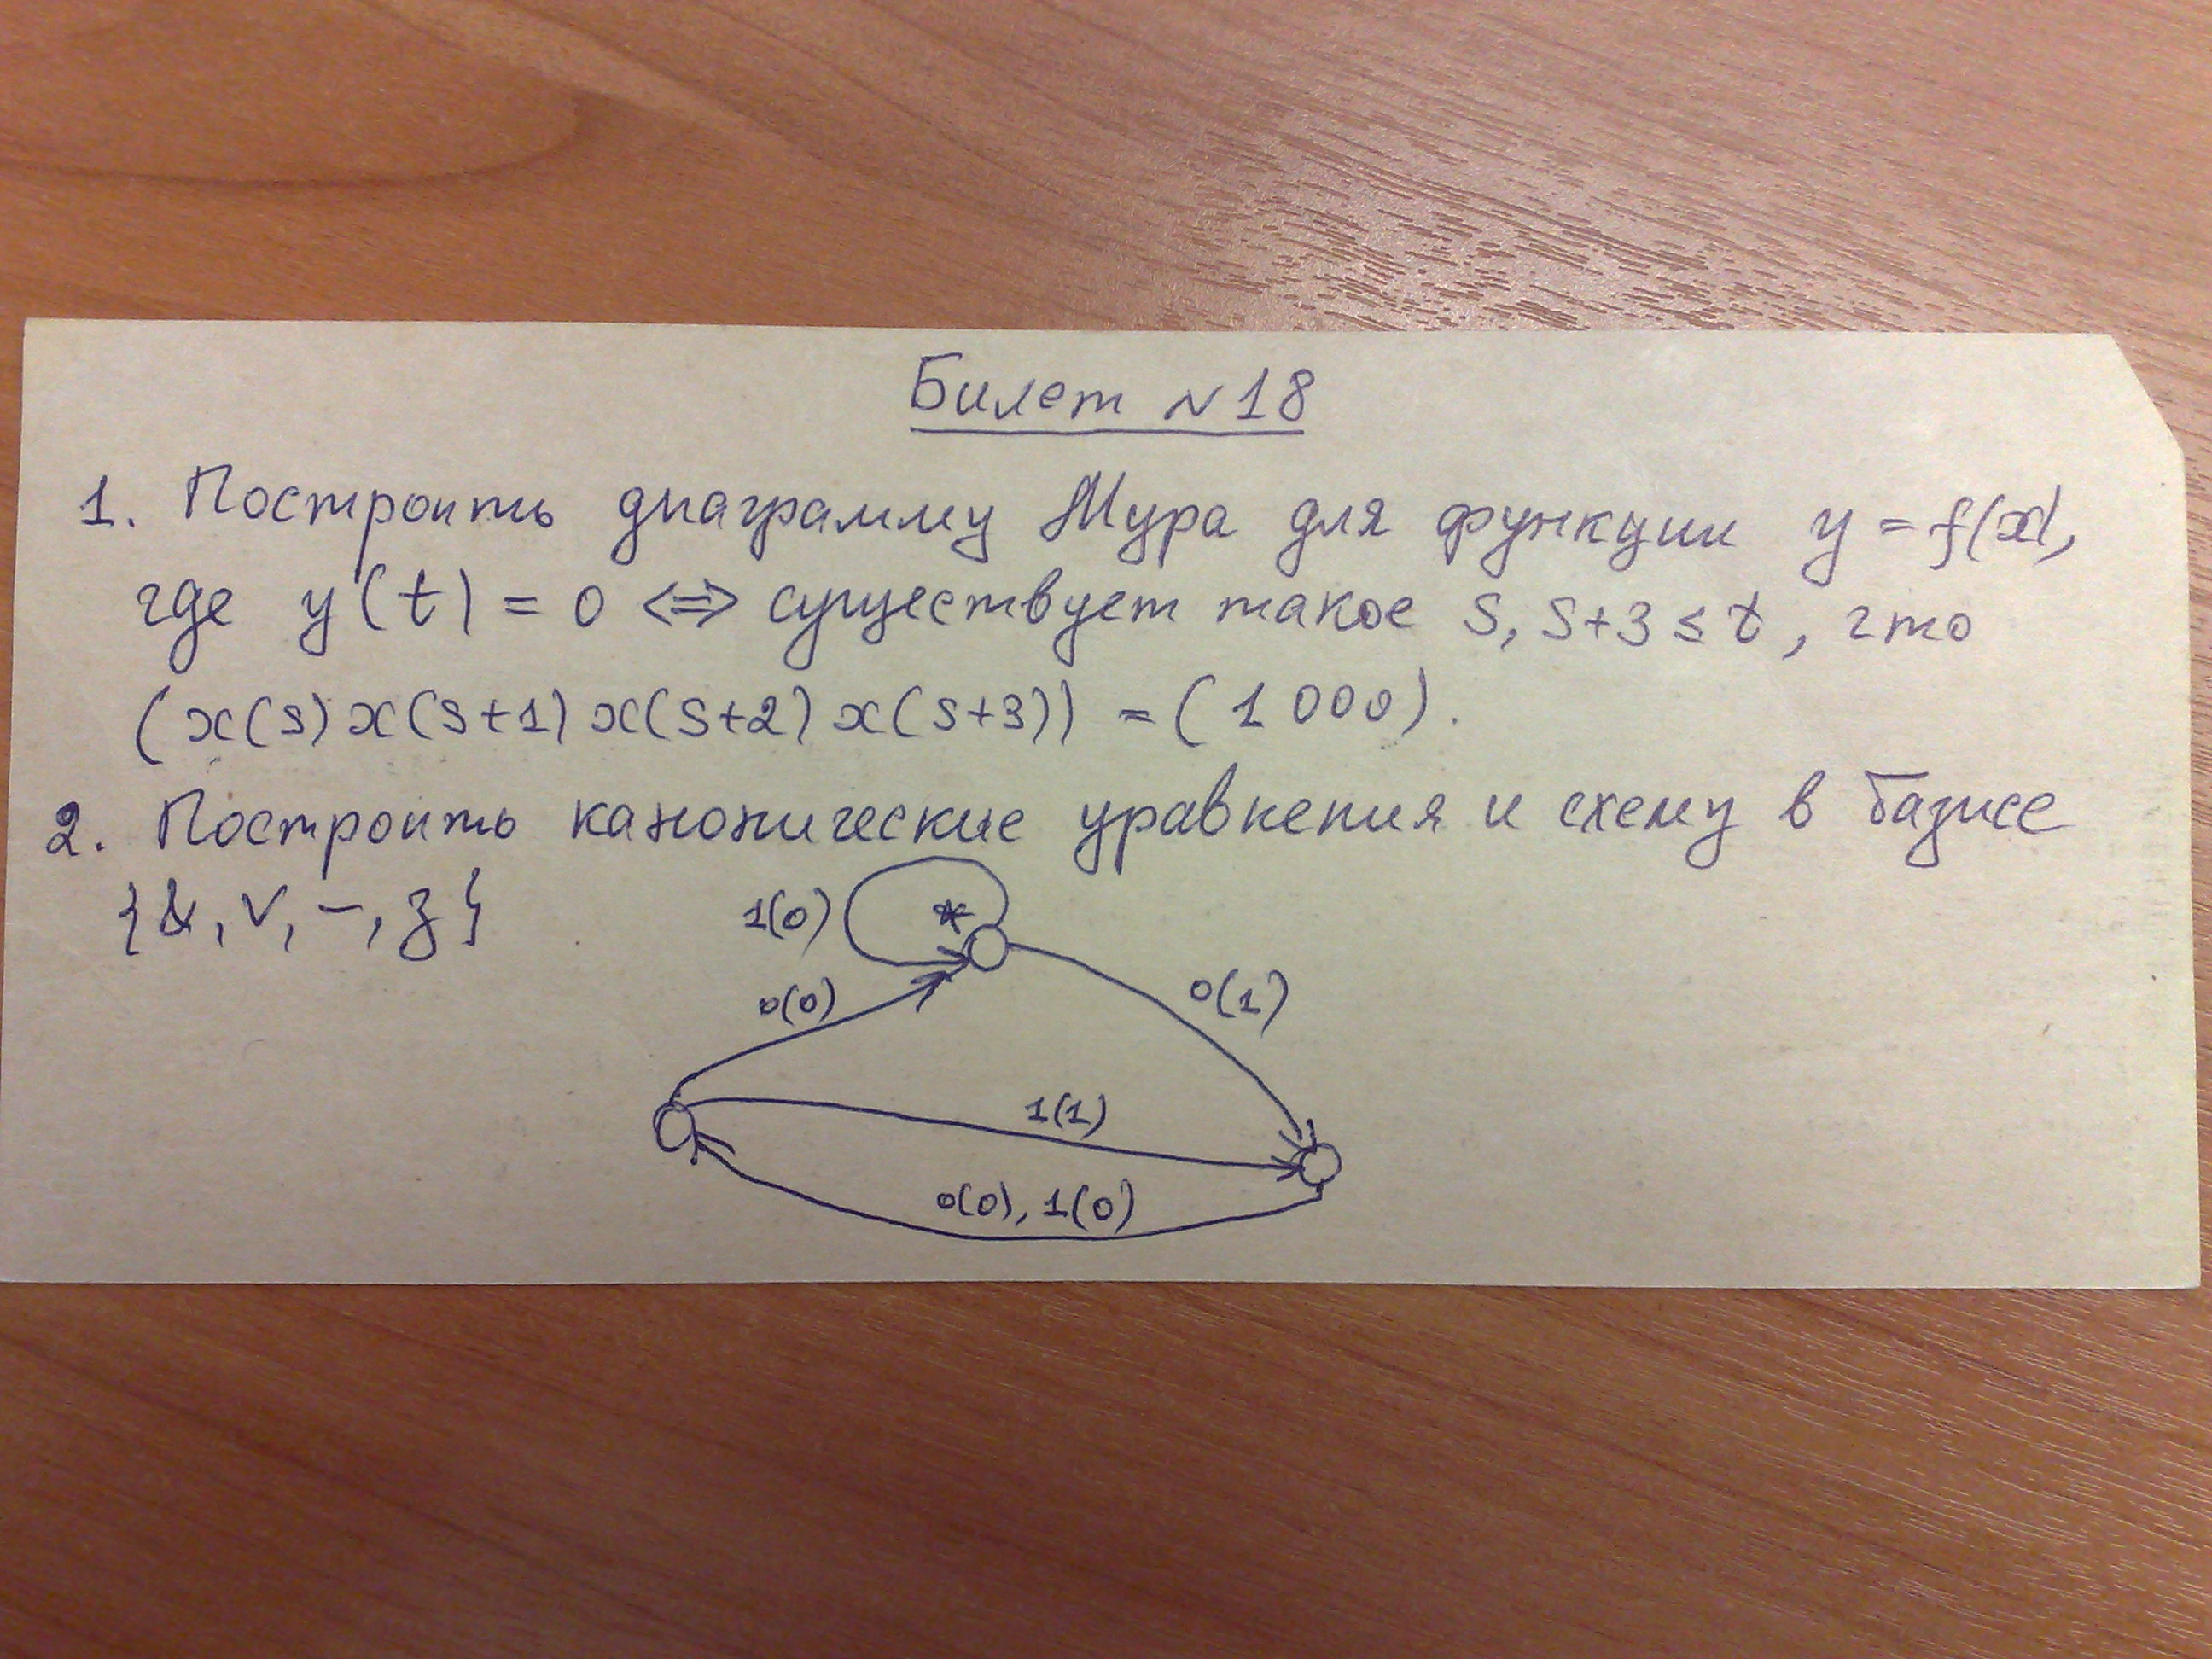 Билет №18
1. Построить диаграмму Мура для функции y = f(x),
где y(t) = 0 <=> существует такое s, s+3 ≤ t, что
(x(s) x(s+1) x(s+2) x(s+3)) = (1000).
2. Построить канонические уравнения и схему в базисе
{&, ∨, −, з}
1(0) *
0(0) 0(1)
1(1)
0(0), 1(0)